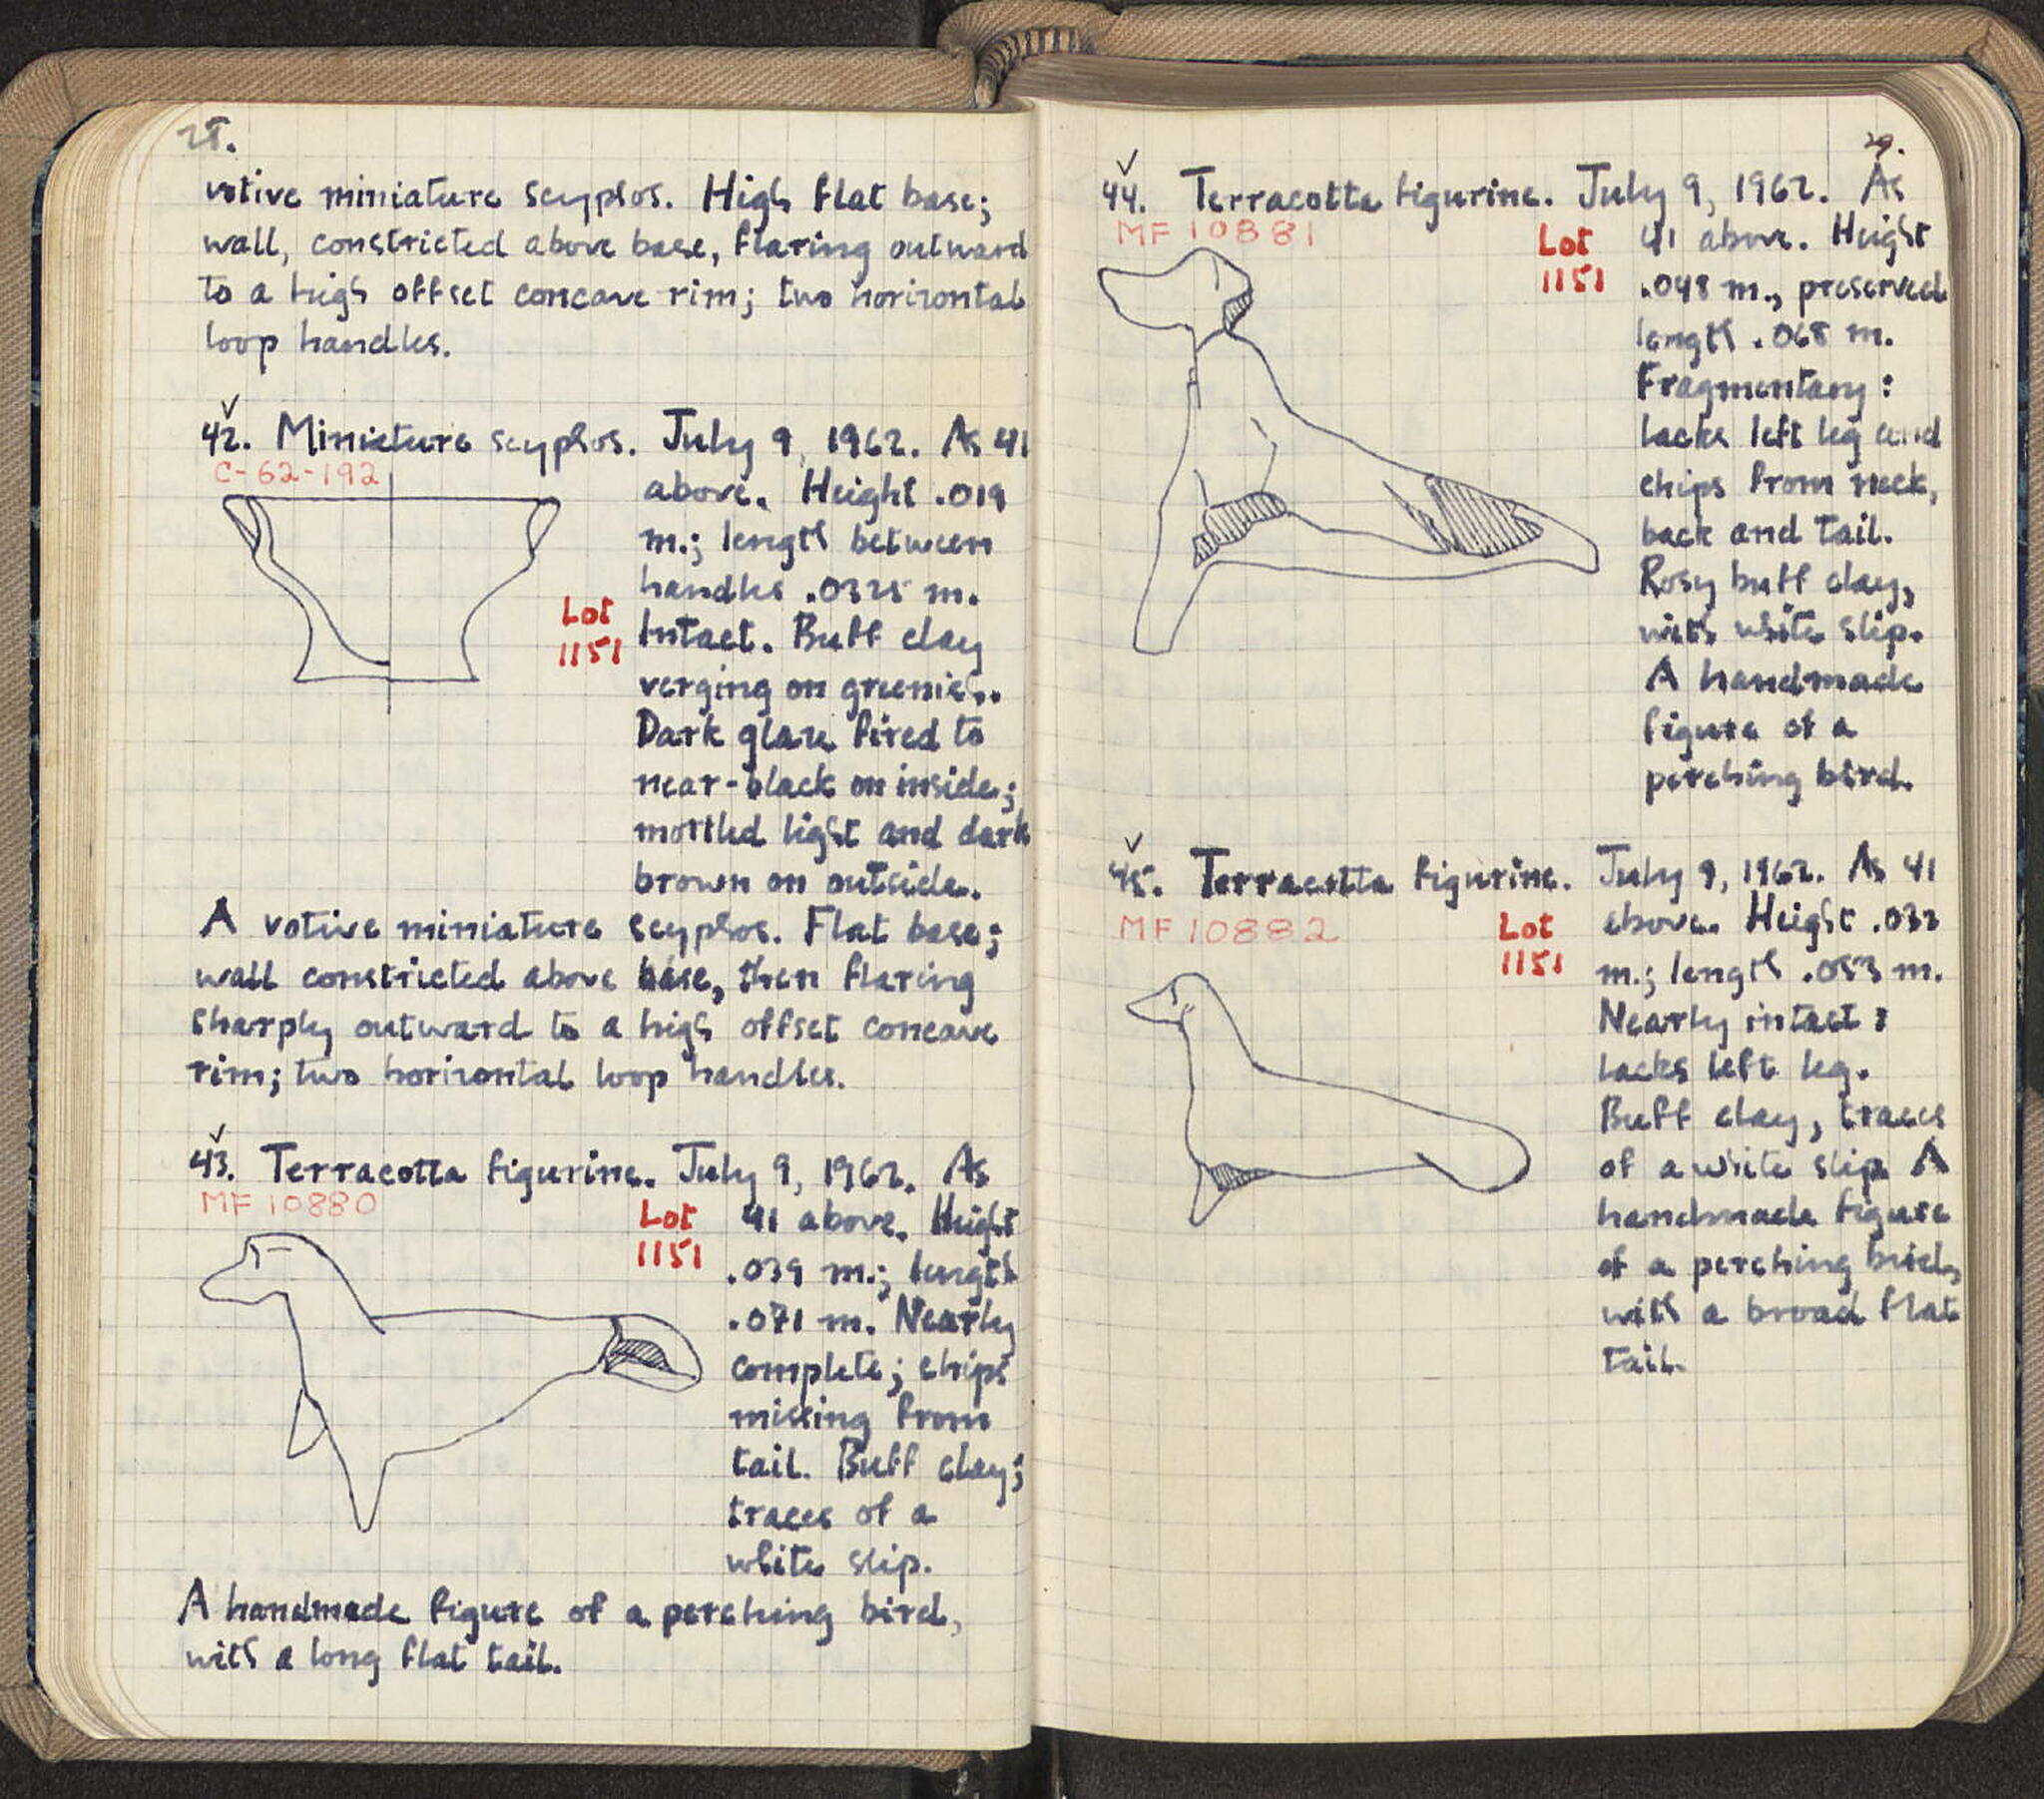 28.
votive miniature scyphos. High flat base;
wall, constricted above base, flaring outward
to a high offset concave rim; two horizontal
loop handles.
✓
42. Miniature scyphos. July 9, 1962. As 41
C-62-192
above. Height .019
m.; length between
handles .0325 m.
Lot
1151
Intact. Buff clay
verging on greenish.
Dark glaze fired to
near-black on inside;
mottled light and dark
brown on outside.
A votive miniature scyphos. Flat base;
wall constricted above base, then flaring
sharply outward to a high offset concave
rim; two horizontal loop handles.
✓
43. Terracotta figurine. July 9, 1962. As
MF 10880
Lot
1151
41 above. Height
.039 m.; length
.071 m. Nearly
complete; chips
missing from
tail. Buff clay;
traces of a
white slip.
A handmade figure of a perching bird,
with a long flat tail.
29.
✓
44. Terracotta figurine. July 9, 1962. As
MF 10881
Lot
1151
41 above. Height
.048 m., preserved
length .068 m.
Fragmentary:
lacks left leg and
chips from neck,
back and tail.
Rosy buff clay,
with white slip.
A handmade
figure of a
perching bird.
✓
45. Terracotta figurine. July 9, 1962. As 41
MF 10882
Lot
1151
above. Height .032
m.; length .053 m.
Nearly intact:
lacks left leg.
Buff clay, traces
of a white slip. A
handmade figure
of a perching bird,
with a broad flat
tail.